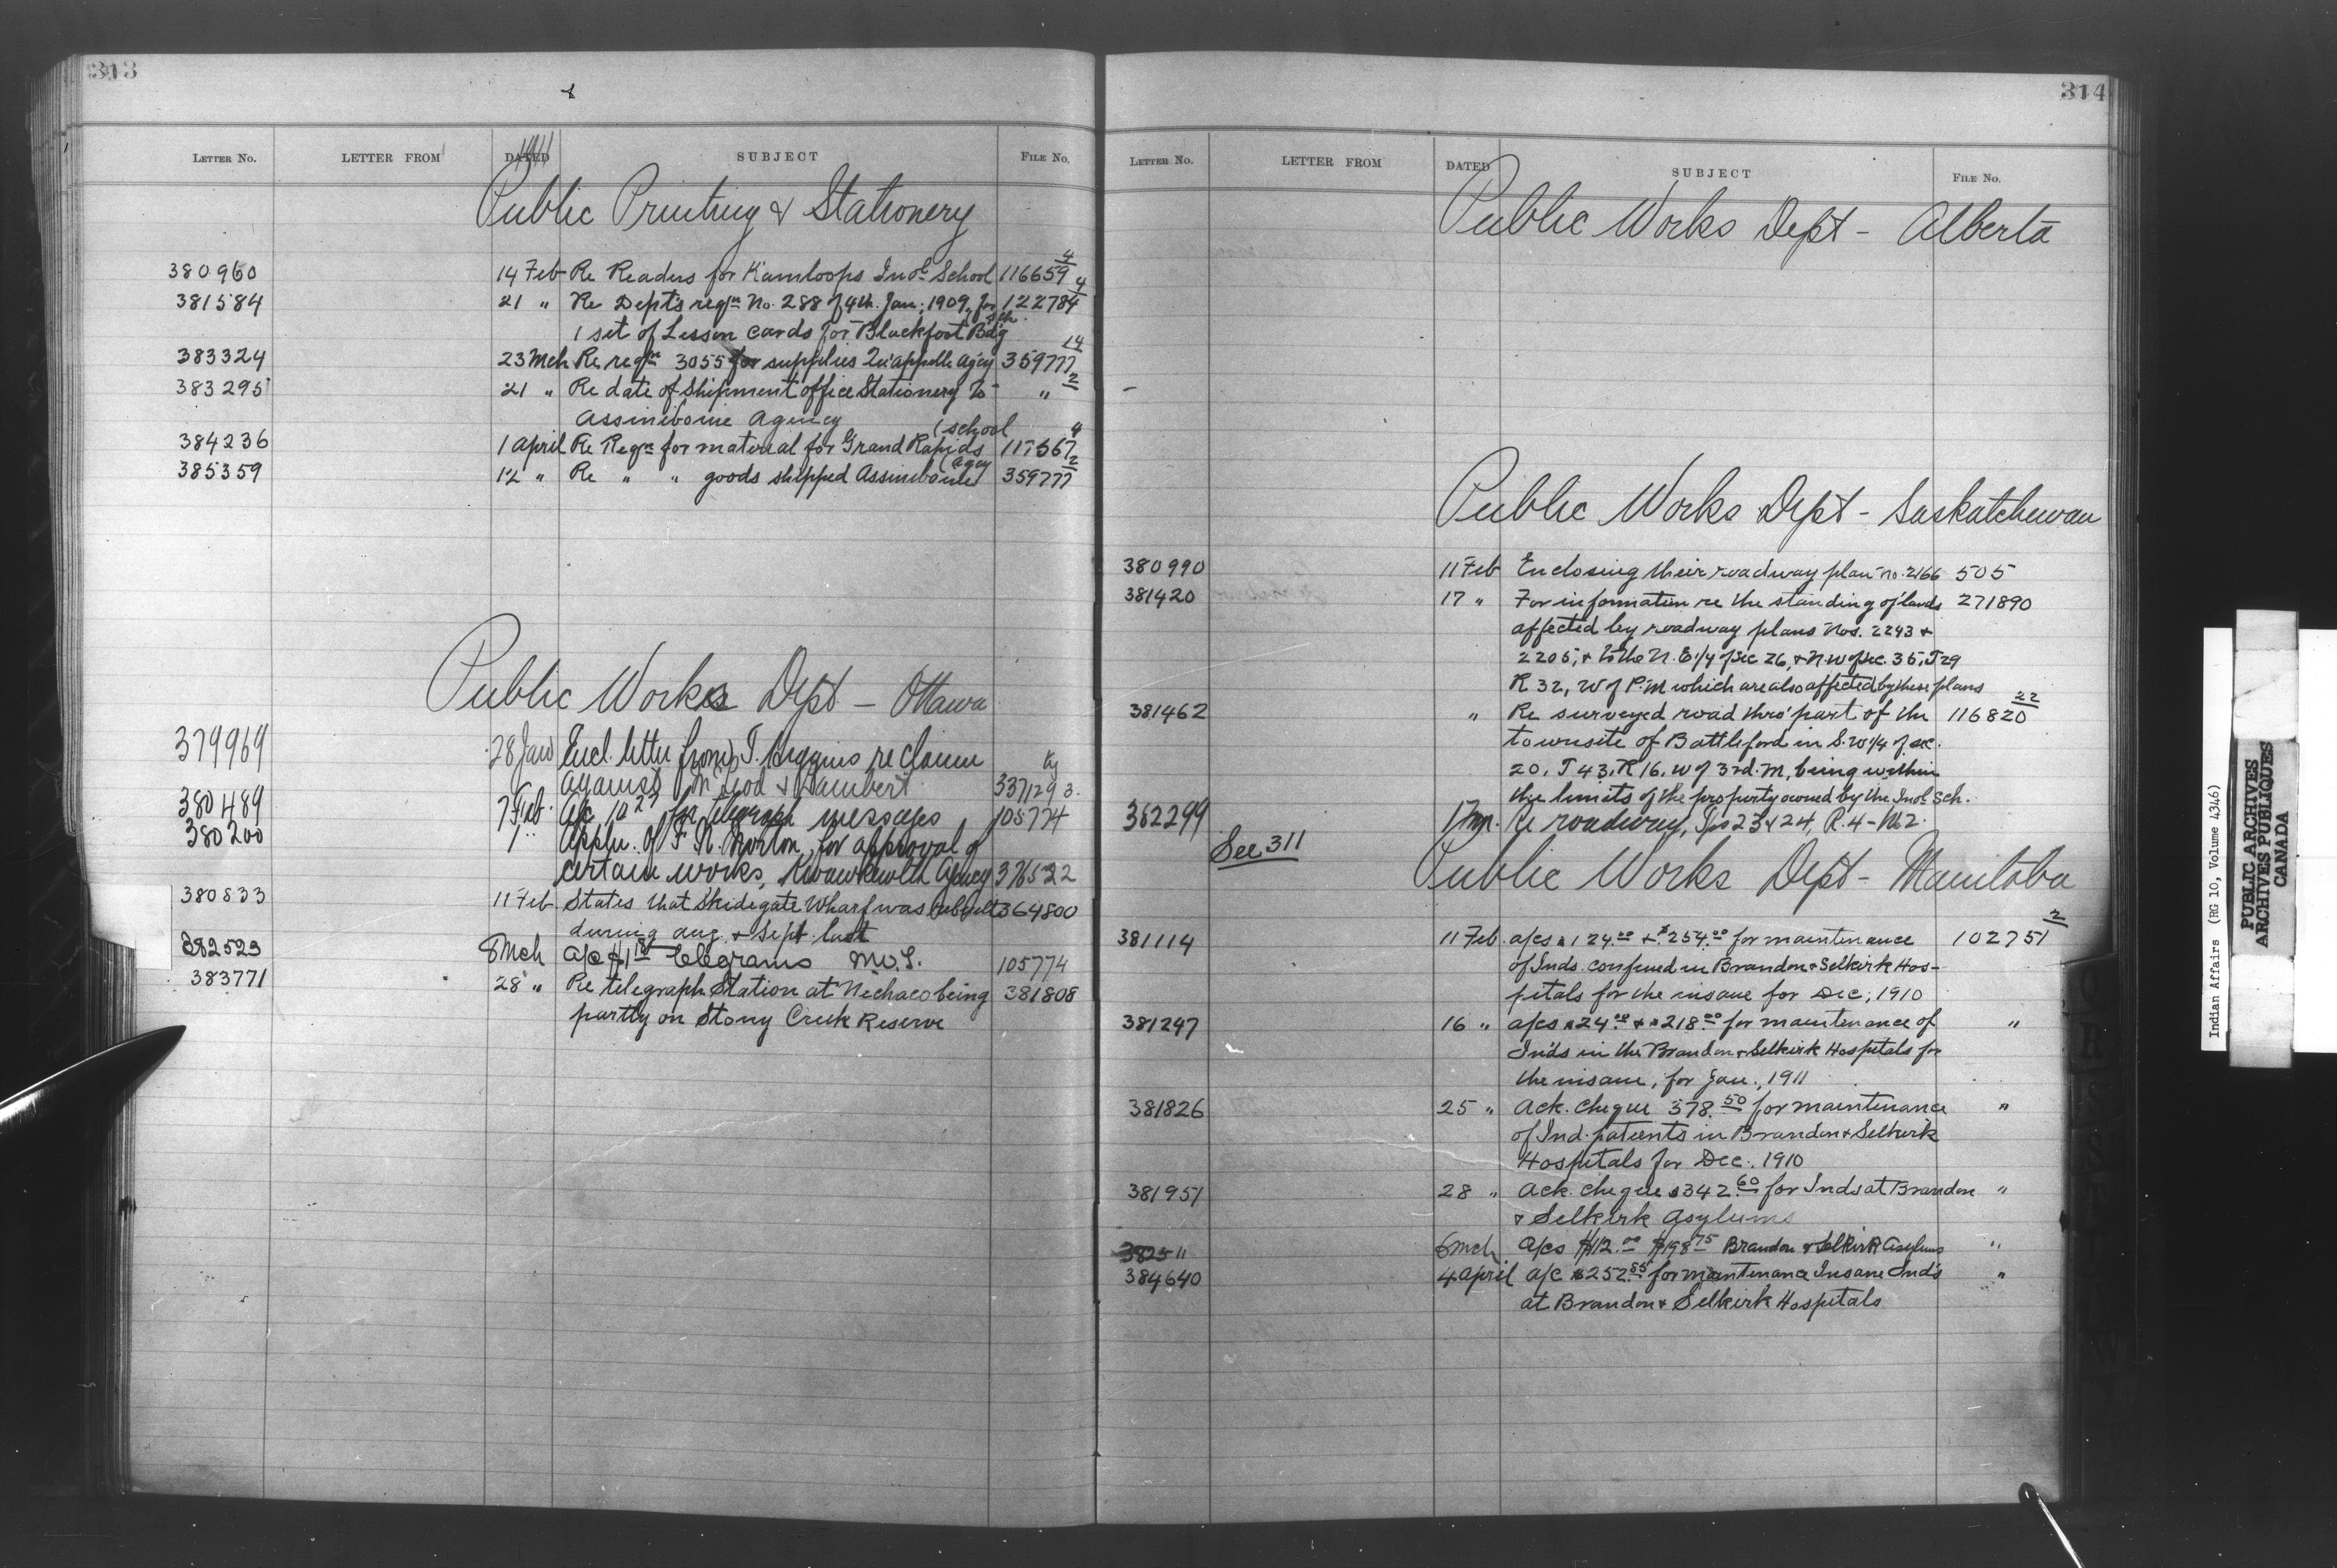 313
LETTER No. LETTER FROM DATED SUBJECT FILE No.
1911
Public Printing & Stationery
380960 14 Feb Re Readers for Kamloops Indl School 116659 4
381584 21 " Re Dept's reqn No. 288 of 4th. Jan; 1909, for 122784 4
1 set of Lesson cards for Blackfoot Bdg Sch.
383324 23 Mch Re reqn 3055 for supplies Qu'appelle Agcy 359777 14
383295 21 " Re date of Shipment office Stationery to " 2
Assiniboine Agency
384236 1 April Re Reqn for material for Grand Rapids (school 4
385359 12 " Re " " goods shipped Assiniboine (Agcy 359777 2
Public Works Dept - Ottawa
379969 28 Jan Encl. letter from J. Higgins re claim
against McLeod & Lambert 337129 3.
380489 7 Feb. A/c for telegraph messages 105774
380200 1 " Appln. of F. R. Morton, for approval of
certain works, Kwawkewlth Agency 376522
380833 11 Feb. States that Skidegate Wharf was rebuilt 364800
during Aug. & Sept. last
382523 8 Mch a/c $1 telegrams 105774
383771 28 " Re telegraph Station at Nechaco being 381808
partly on Stony Creek Reserve
314
LETTER No. LETTER FROM DATED SUBJECT FILE No.
Public Works Dept - Alberta
Public Works Dept - Saskatchewan
380990 11 Feb Enclosing their roadway plan no. 2166 505
381420 17 " For information re the standing of lands 271890
affected by roadway plans Nos. 2243 &
2205, & to the N.E. 1/4 of Sec 26, & N.W of Sec. 35, T 29
R 32, W of P.M which are also affected by these plans
381462 " Re surveyed road thro' part of the 116820 22
townsite of Battleford in S.W 1/4 of sec.
20. T 43, R 16, W of 3rd. M, being within
the limits of the property owned by the Indl Sch.
382299 Re roadway, Tps 23 & 24, R. 4 - W. 2.
See 311
Public Works Dept - Manitoba
381114 11 Feb. a/cs $124.00 & $254.00 for maintenance 102751 2
of Inds. confined in Brandon & Selkirk Hos-
pitals for the insane for Dec; 1910
381247 16 " a/cs $24.00 & $218.00 for maintenance of "
Inds in the Brandon & Selkirk Hospitals for
the insane, for Jan., 1911
381826 25 " Ack. cheque 378.50 for maintenance "
of Ind. patients in Brandon & Selkirk
Hospitals for Dec., 1910
381951 28 " Ack. cheque $342.60 for Inds at Brandon "
& Selkirk Asylums
382511 8 Mch a/cs $112.00 $198.75 Brandon & Selkirk Asylums "
384640 4 April a/c $252.85 for maintenance Insane Inds "
at Brandon & Selkirk Hospitals
Indian Affairs (RG 10, Volume 4346)
PUBLIC ARCHIVES
ARCHIVES PUBLIQUES
CANADA